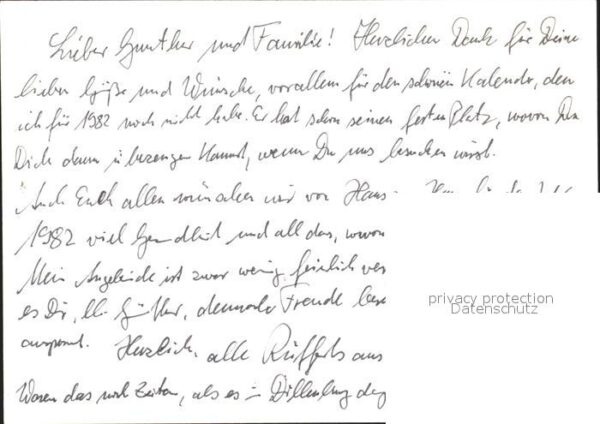 Lieber Gunther und Familie! Herzlichen Dank für Deine
lieben Grüße und Wünsche, vorallem für den schönen Kalender, den
ich für 1982 noch nicht habe. Er hat schon seinen festen Platz, wovon Du
Dich dann überzeugen kannst, wenn Du uns besuchen wirst.
Auch Euch allen wünschen wir von
1982 viel Gesundheit und all das, wovon
Mein ist zwar wenig feierlich
es Dir, dennoch Freude
Herzlich, alle Rüfferts aus
Waren das noch Zeiten, als es in Dillenburg
privacy protection
Datenschutz